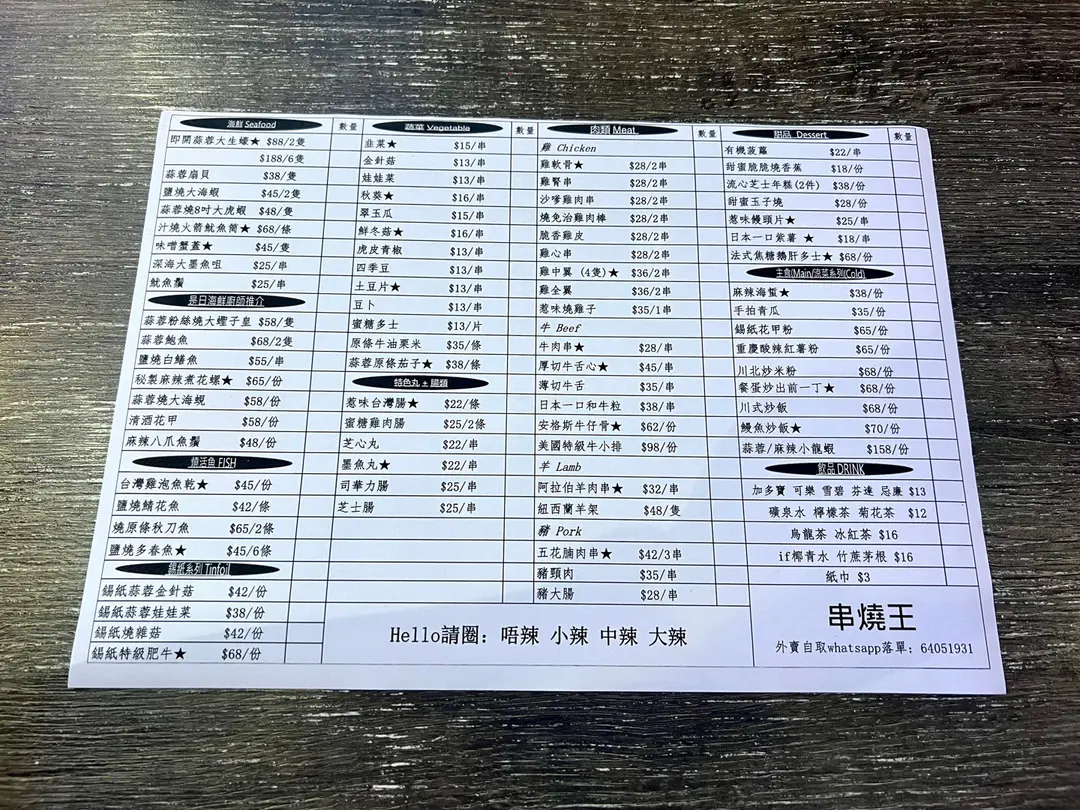 海鮮 Seafood 數量
即開蒜蓉大生蠔★ $88/2隻
$188/6隻
蒜蓉扇貝 $38/隻
鹽燒大海蝦 $45/2隻
蒜蓉燒8吋大虎蝦 $48/隻
汁燒火箭魷魚筒★ $68/條
味噌蟹蓋★ $45/隻
深海大墨魚咀 $25/串
魷魚鬚 $25/串
是日海鮮廚師推介
蒜蓉粉絲燒大蟶子皇 $58/隻
蒜蓉鮑魚 $68/2隻
鹽燒白鱔魚 $55/串
秘製麻辣煮花螺★ $65/份
蒜蓉燒大海蜆 $58/份
清酒花甲 $58/份
麻辣八爪魚鬚 $48/份
燒活魚 FISH
台灣雞泡魚乾★ $45/份
鹽燒鰭花魚 $42/條
燒原條秋刀魚 $65/2條
鹽燒多春魚★ $45/6條
錫紙系列 Tinfoil
錫紙蒜蓉金針菇 $42/份
錫紙蒜蓉娃娃菜 $38/份
錫紙燒雜菇 $42/份
錫紙特級肥牛★ $68/份
蔬菜 Vegetable 數量
韭菜★ $15/串
金針菇 $13/串
娃娃菜 $13/串
秋葵★ $16/串
翠玉瓜 $15/串
鮮冬菇★ $16/串
虎皮青椒 $13/串
四季豆 $13/串
土豆片★ $13/串
豆卜 $13/串
蜜糖多士 $13/片
原條牛油粟米 $35/條
蒜蓉原條茄子★ $38/條
特色丸 ± 腸類
惹味台灣腸★ $22/條
蜜糖雞肉腸 $25/2條
芝心丸 $22/串
墨魚丸★ $22/串
司華力腸 $25/串
芝士腸 $25/串
肉類 Meat 數量
雞 Chicken
雞軟骨★ $28/2串
雞腎串 $28/2串
沙嗲雞肉串 $28/2串
燒免治雞肉棒 $28/2串
脆香雞皮 $28/2串
雞心串 $28/2串
雞中翼 (4隻)★ $36/2串
雞全翼 $36/2串
惹味燒雞子 $35/1串
牛 Beef
牛肉串★ $28/串
厚切牛舌心★ $45/串
薄切牛舌 $35/串
日本一口和牛粒 $38/串
安格斯牛仔骨★ $62/份
美國特級牛小排 $98/份
羊 Lamb
阿拉伯羊肉串★ $32/串
紐西蘭羊架 $48/隻
豬 Pork
五花腩肉串★ $42/3串
豬頸肉 $35/串
豬大腸 $28/串
甜品 Dessert 數量
有機菠蘿 $22/串
甜蜜脆脆燒香蕉 $18/份
流心芝士年糕(2件) $38/份
甜蜜玉子燒 $28/份
惹味饅頭片★ $25/串
日本一口紫薯 ★ $18/串
法式焦糖鵝肝多士★ $68/份
主食(Main/涼菜系列(Cold)
麻辣海蜇★ $38/份
手拍青瓜 $35/份
錫紙花甲粉 $65/份
重慶酸辣紅薯粉 $65/份
川北炒米粉 $68/份
餐蛋炒出前一丁★ $68/份
川式炒飯 $68/份
鰻魚炒飯★ $70/份
蒜蓉/麻辣小龍蝦 $158/份
飲品 DRINK
加多寶 可樂 雪碧 芬達 忌廉 $13
礦泉水 檸檬茶 菊花茶 $12
烏龍茶 冰紅茶 $16
if椰青水 竹蔗茅根 $16
紙巾 $3
Hello請圈: 唔辣 小辣 中辣 大辣
串燒王
外賣自取whatsapp落單: 64051931